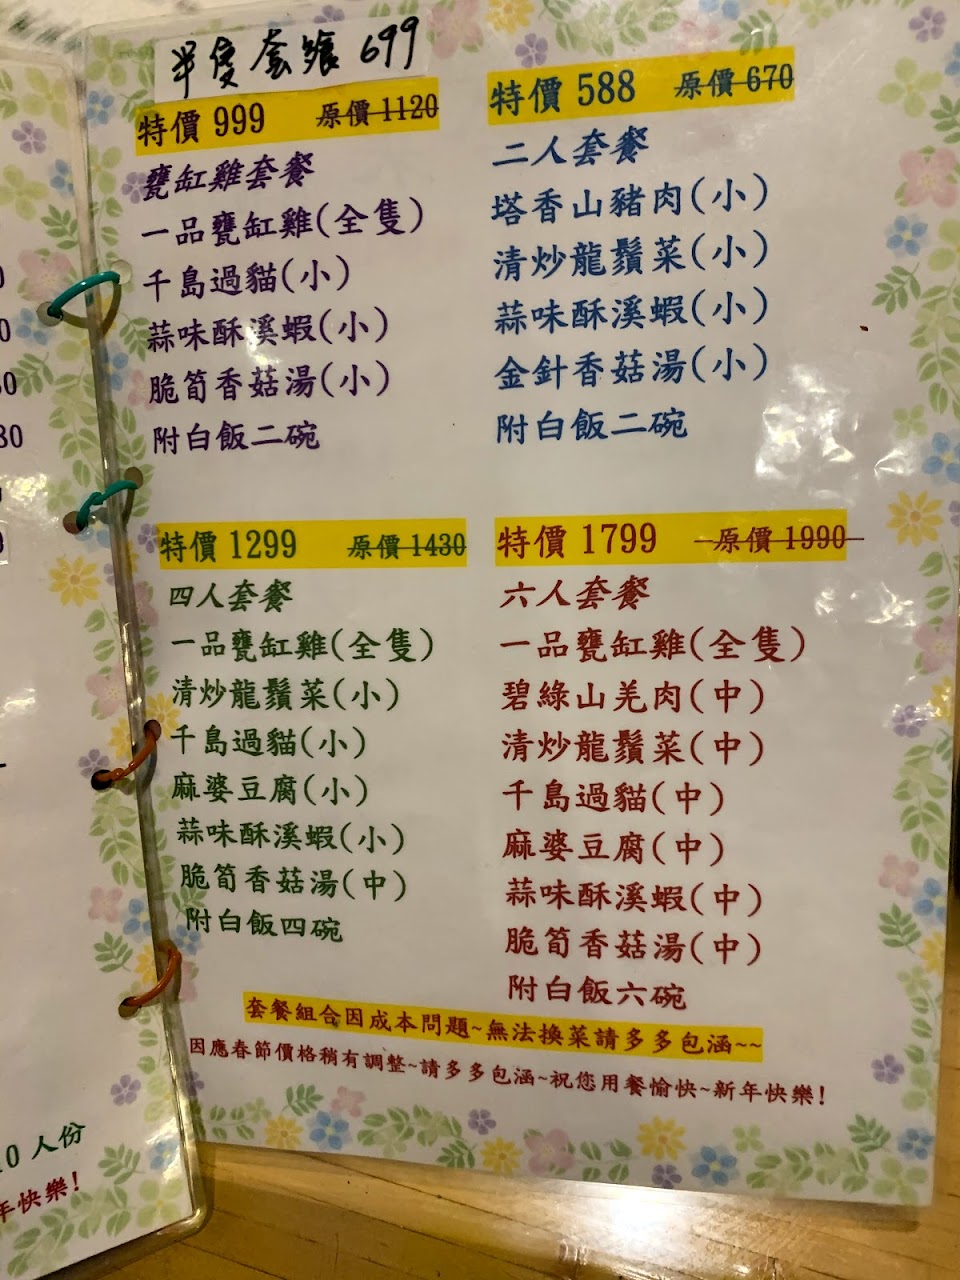 半隻套餐 699
特價 999 原價 1120
甕缸雞套餐
一品甕缸雞(全隻)
千島過貓(小)
蒜味酥溪蝦(小)
脆筍香菇湯(小)
附白飯二碗
特價 588 原價 670
二人套餐
塔香山豬肉(小)
清炒龍鬚菜(小)
蒜味酥溪蝦(小)
金針香菇湯(小)
附白飯二碗
特價 1299 原價 1430
四人套餐
一品甕缸雞(全隻)
清炒龍鬚菜(小)
千島過貓(小)
麻婆豆腐(小)
蒜味酥溪蝦(小)
脆筍香菇湯(中)
附白飯四碗
特價 1799 原價 1990
六人套餐
一品甕缸雞(全隻)
碧綠山羌肉(中)
清炒龍鬚菜(中)
千島過貓(中)
麻婆豆腐(中)
蒜味酥溪蝦(中)
脆筍香菇湯(中)
附白飯六碗
套餐組合因成本問題~無法換菜請多多包涵~~
因應春節價格稍有調整~請多多包涵~祝您用餐愉快~新年快樂!
10 人份
年快樂!